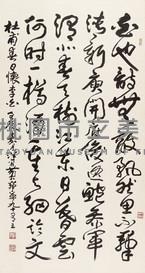 白也詩無敵飄然思不羣
清新庾開府俊逸鮑參軍
渭北春天樹江東日暮雲
何時一樽酒重與細論文
杜甫春日懷李白
桃園市立美